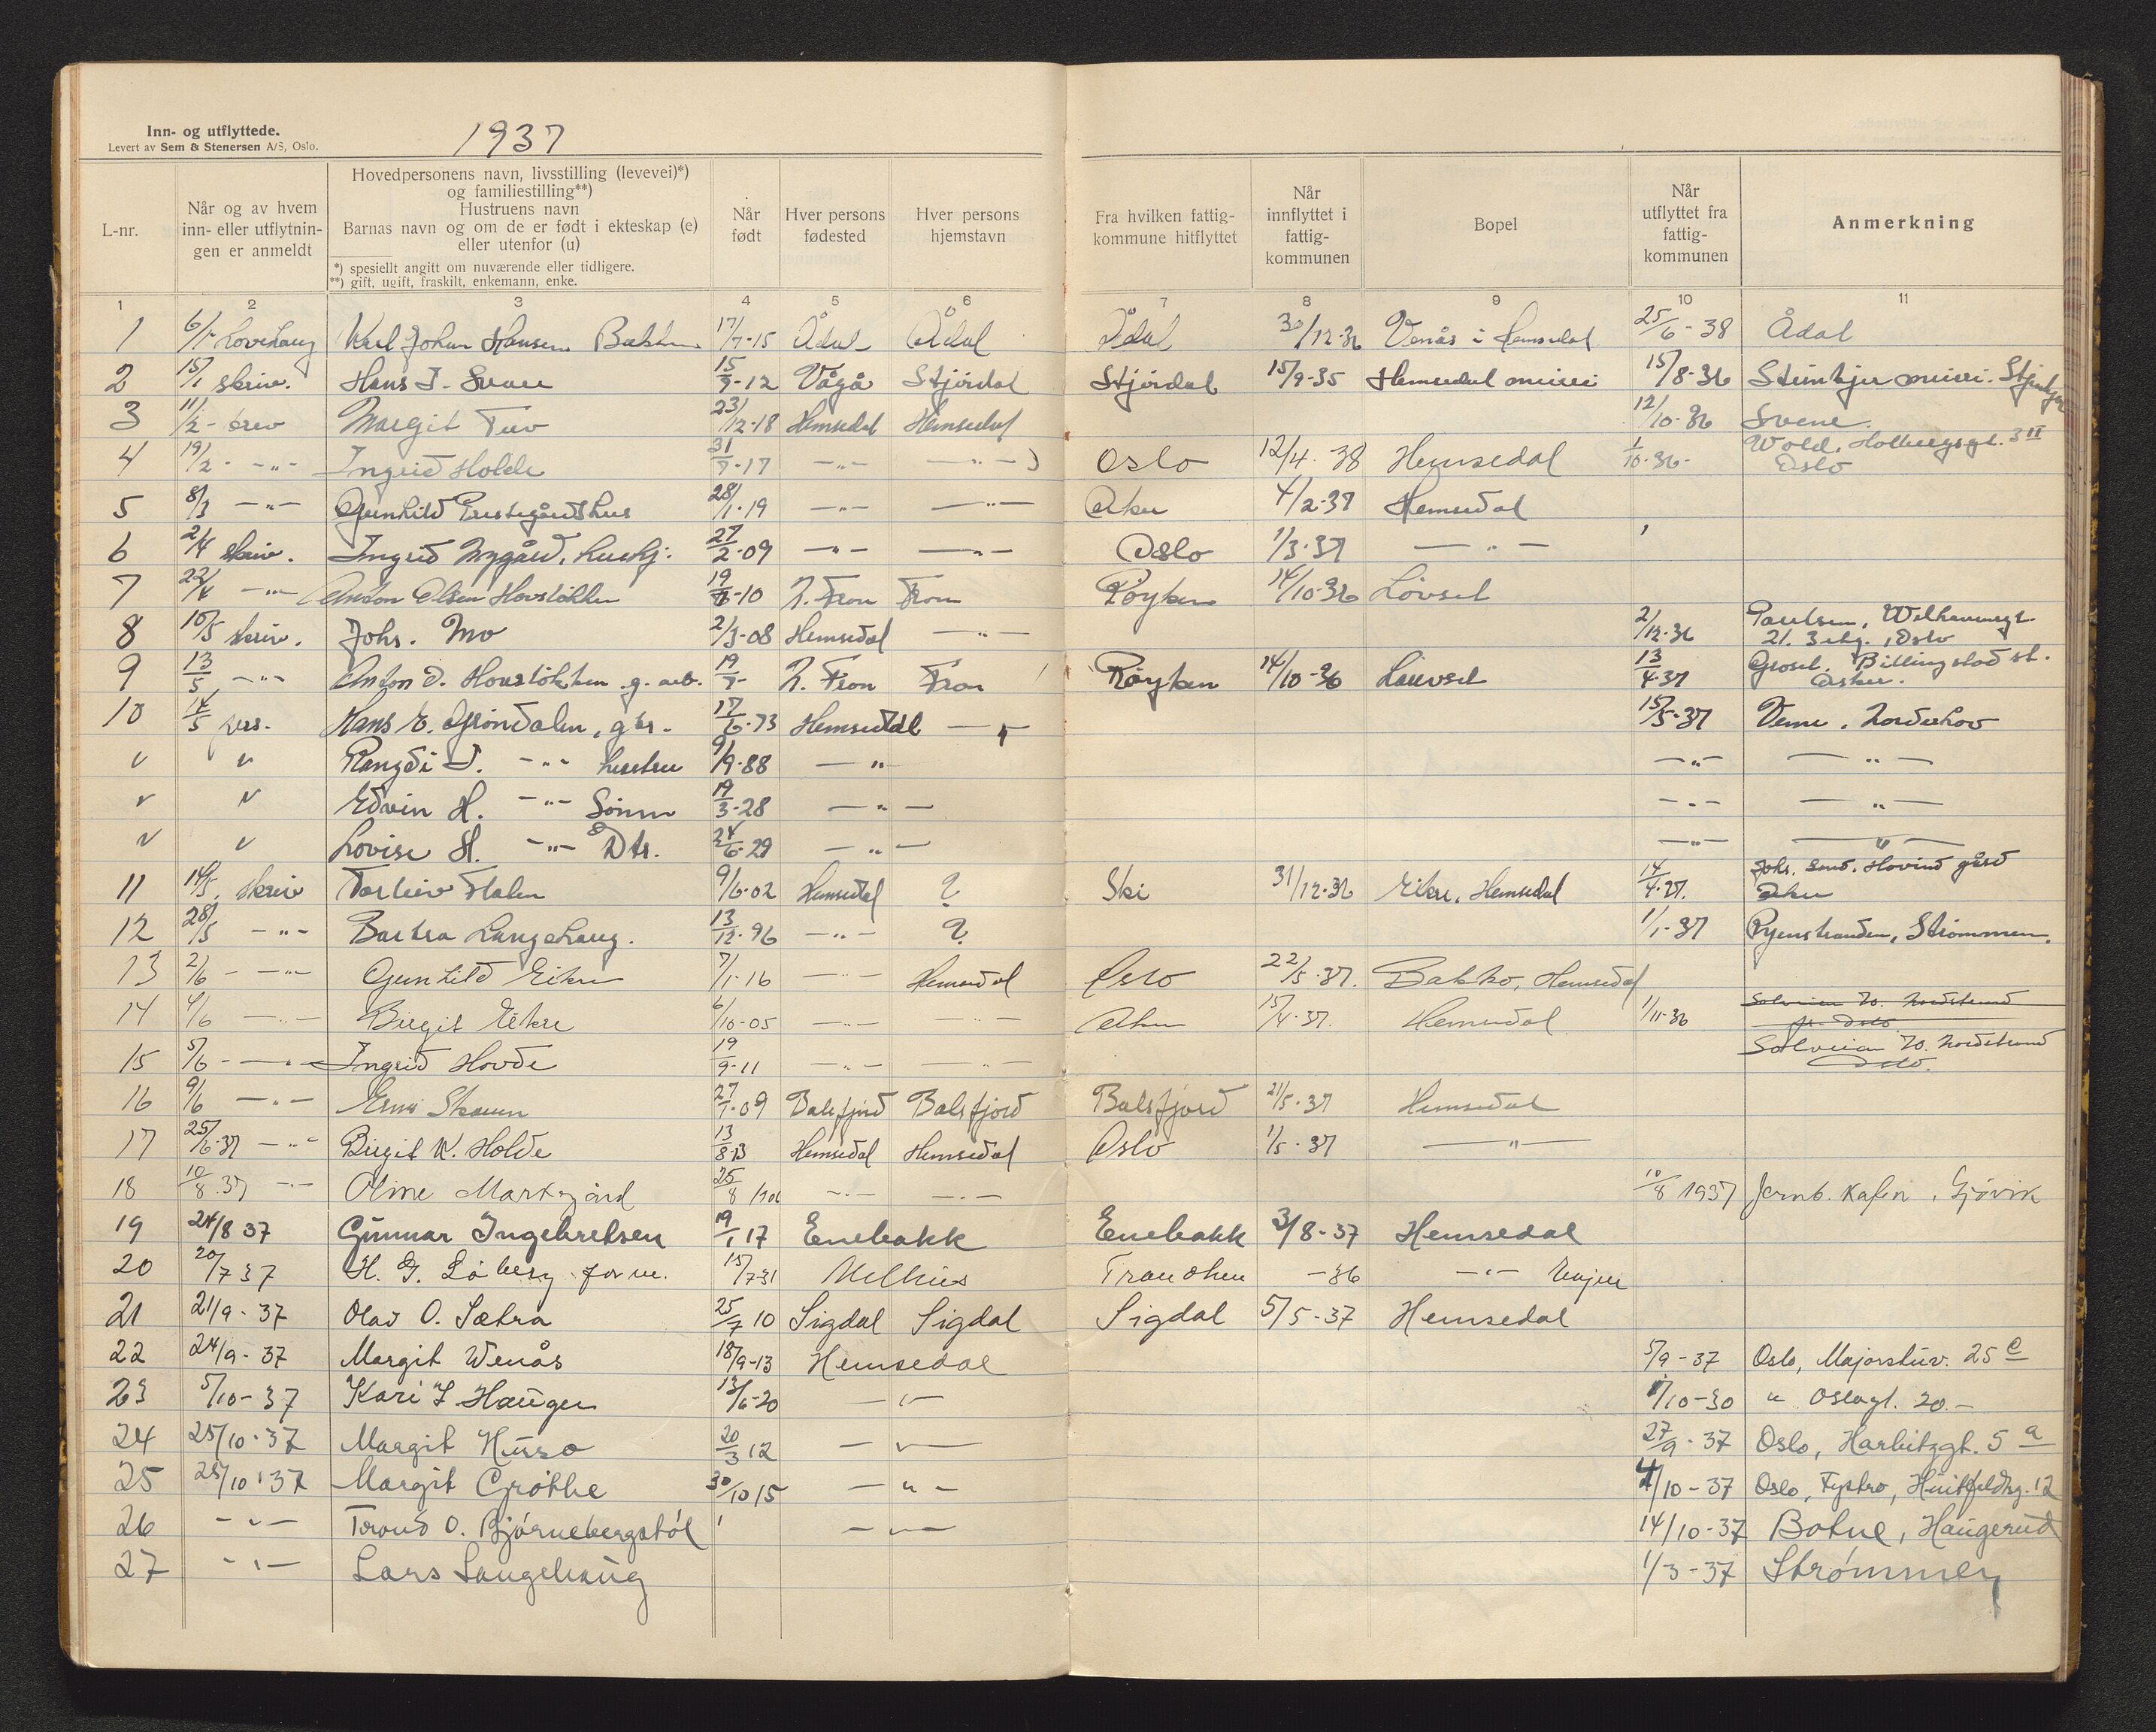 Inn- og utflyttede.
Levert av Sem & Stenersen A/S, Oslo.
1937
L-nr.
Når og av hvem inn- eller utflytnin- gen er anmeldt
Hovedpersonens navn, livsstilling (levevei)*) og familiestilling**)
Hustruens navn
Barnas navn og om de er født i ekteskap (e) eller utenfor (u)
*) spesiellt angitt om nuværende eller tidligere.
**) gift, ugift, fraskilt, enkemann, enke.
Når født
Hver persons fødested
Hver persons hjemstavn
Fra hvilken fattig- kommune hitflyttet
Når innflyttet i fattig- kommunen
Bopel
Når utflyttet fra fattig- kommunen
Anmerkning
1 2 3 4 5 6 7 8 9 10 11
1 Karl Johan Hansen 17/7-15 Ådal Ådal Ådal 30/12-36 Venås i Hemsedal 25/6-38 Ådal
2 15/1 skriv. Hans J. 15/9-12 Vågå Stjørdal Stjørdal 15/9-35 Hemsedal meieri 15/8-36 Steinkjer meieri. Steinkjer
3 11/2 - brev Margit Tuv 23/12-18 Hemsedal Hemsedal 12/10-36 Svene.
4 19/2 - -"- Ingrid Holde 31/7-17 -"- -"- Oslo 12/4-38 Hemsedal 1/10-36- Wold, Holbergsgt. 3 II Oslo
5 8/3 -"- Gunhild Prestegårdshus 28/1-19 -"- -"- Aker 4/2-37 Hemsedal
6 2/4 skriv. Ingrid Nygård, hushj. 27/2-09 -"- -"- Oslo 1/3-37 -"-
7 22/4 -"- Anton Olsen Hovsløkken 19/7-10 N. Fron Fron Røyken 14/10-36 Løvset
8 10/5 skriv. Johs. Mo 2/3-08 Hemsedal -"- 2/12-36 Paulsen, 21. 3 etg., Oslo
9 13/5 -"- Anton O. Hovsløkken g. arb. 19/7- N. Fron Fron Røyken 14/10-36 13/4-37 Groset. Billingstad st. Asker.
10 14/5 pers. Hans E. Grøndalen, gbr. 17/6-73 Hemsedal -"- 15/5-37 Veme, Norderhov
" " Rangdi J. -"- hustru 9/9-88 -"- -"- -"-
" " Edvin H. -"- Sønn 19/3-28 -"- -"- -"-
" " Lovise H. -"- Dtr. 24/6-29 -"- -"- -"-
11 14/5, skriv Torleiv Flaten 9/6-02 Hemsedal ? Ski 31/12-36 Eikre, Hemsedal 14/4-37. Johs. Hovind gård Aker
12 28/5 -"- Barbra Langehaug. 13/12-96 -"- ? 1/1-37 Ryenstranden, Strømmen.
13 2/6 - -"- Gunhild Eikre 7/1-16 -"- Hemsedal Oslo 22/5-37. Bakko, Hemsedal
14 4/6 -"- Birgit Eikre 6/10-05 -"- -"- Aker 15/4-37. Hemsedal 1/11-36 Solveien 70. Nordstrand pr. Oslo
15 5/6 - -"- Ingrid Hovde 19/9-11 -"- -"- Solveien 70. Nordstrand Oslo.
16 9/6 -"- 27/1-09 Balsfjord Balsfjord Balsfjord 21/5-37 Hemsedal
17 25/6-37 -"- Birgit K. Holde 13/8-13 Hemsedal Hemsedal Oslo 1/5-37 -"-
18 10/8.37 -"- Oline Markegård 25/8 -"- -"- 10/8 1937 Jernb. Kafen, Gjøvik
19 24/8 37 Gunnar Ingebretsen 19/1 17 Enebakk Enebakk 3/8-37 Hemsedal
20 20/7 37 H. G. Løberg 15/7-31 Melhus -36 -"-
21 21/9-37 Olav O. Sætra 25/7 10 Sigdal Sigdal Sigdal 5/5-37 Hemsedal
22 24/9-37 Margit Wenås 18/9-13 Hemsedal 5/9-37 Oslo, Majorstuv. 25 c
23 5/10-37 Kari T Haugen 13/6-20 -"- 1/10-30 " Oslogt. 20.-
24 25/10-37 Margit Huso 20/3 12 -"- 27/9-37 Oslo, Harbitzgt. 5 a
25 25/10-37 Margit Grøthe 30/10 15 -"- 4/10-37 Oslo, Huitfeldtsg. 12
26 -"- Trond O. Bjørnebergstøl -"- 14/10-37 Botne, Haugerud
27 -"- Lars Langehaug 1/3-37 Strømmen